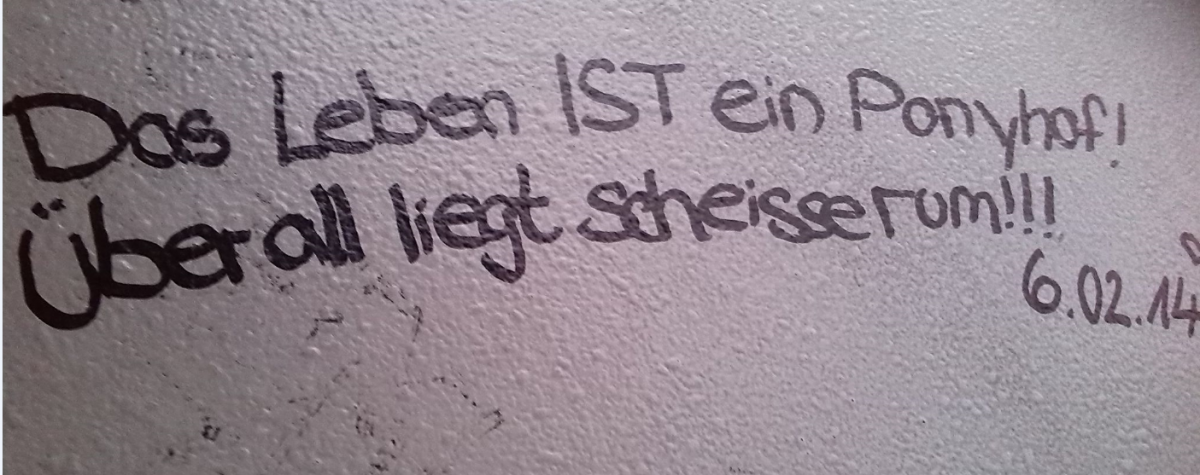 Das Leben IST ein Ponyhof!
Überall liegt scheisse rum!!!
6.02.14